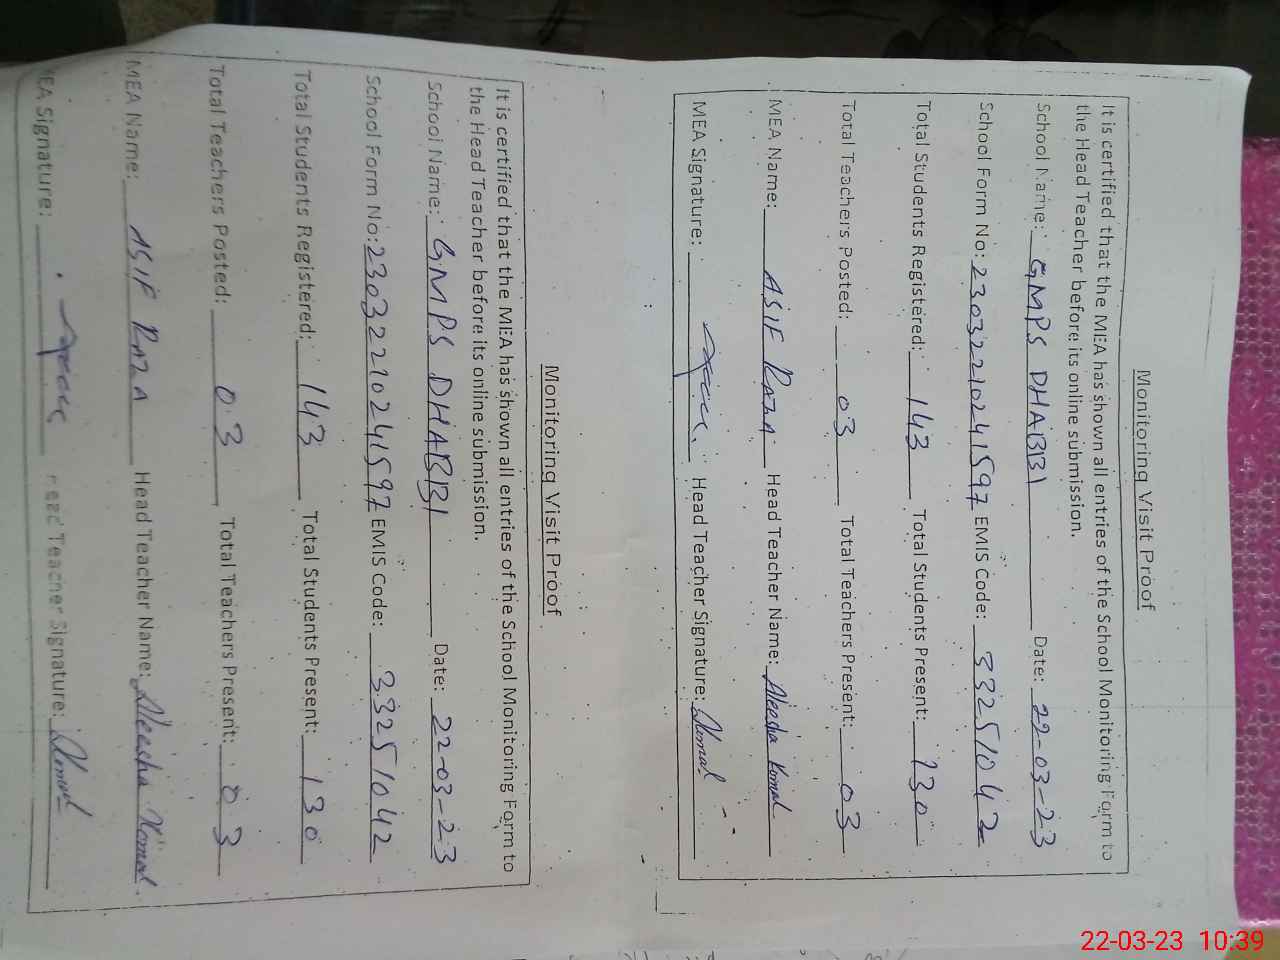 Monitoring Visit Proof
It is certified that the MEA has shown all entries of the School Monitoring Form to
the Head Teacher before its online submission.
School Name: GMPS DHABBI Date: 22-03-23
School Form No: 23032210241597 EMIS Code: 33251042
Total Students Registered: 143 Total Students Present: 130
Total Teachers Posted: 03 Total Teachers Present: 03
MEA Name: ASIF RAZA Head Teacher Name: Aleesha Komal
MEA Signature: Head Teacher Signature: Komal
Monitoring Visit Proof
It is certified that the MEA has shown all entries of the School Monitoring Form to
the Head Teacher before its online submission.
School Name: GMPS DHABBI Date: 22-03-23
School Form No: 23032210241597 EMIS Code: 33251042
Total Students Registered: 143 Total Students Present: 130
Total Teachers Posted: 03 Total Teachers Present: 03
MEA Name: ASIF RAZA Head Teacher Name: Aleesha Komal
MEA Signature: Head Teacher Signature: Komal
22-03-23 10:39